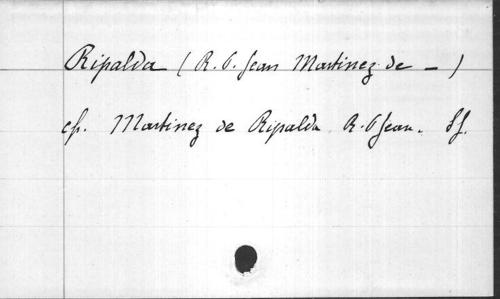 Ripalda (R. P. Jean Martinez de – )
cfr. Martinez de Ripalda R. P Jean. Sj.